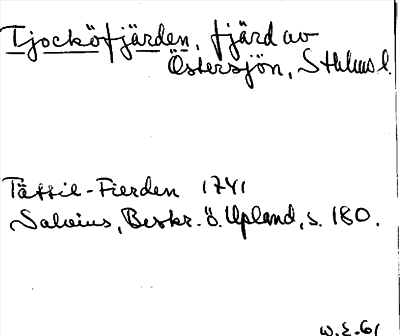 Tjocköfjärden, fjärd av
Östersjön, Sthlms l.
Tässil-Fierden 1741
Salvius, Beskr. ö. Upland, s. 180.
W.E. 61